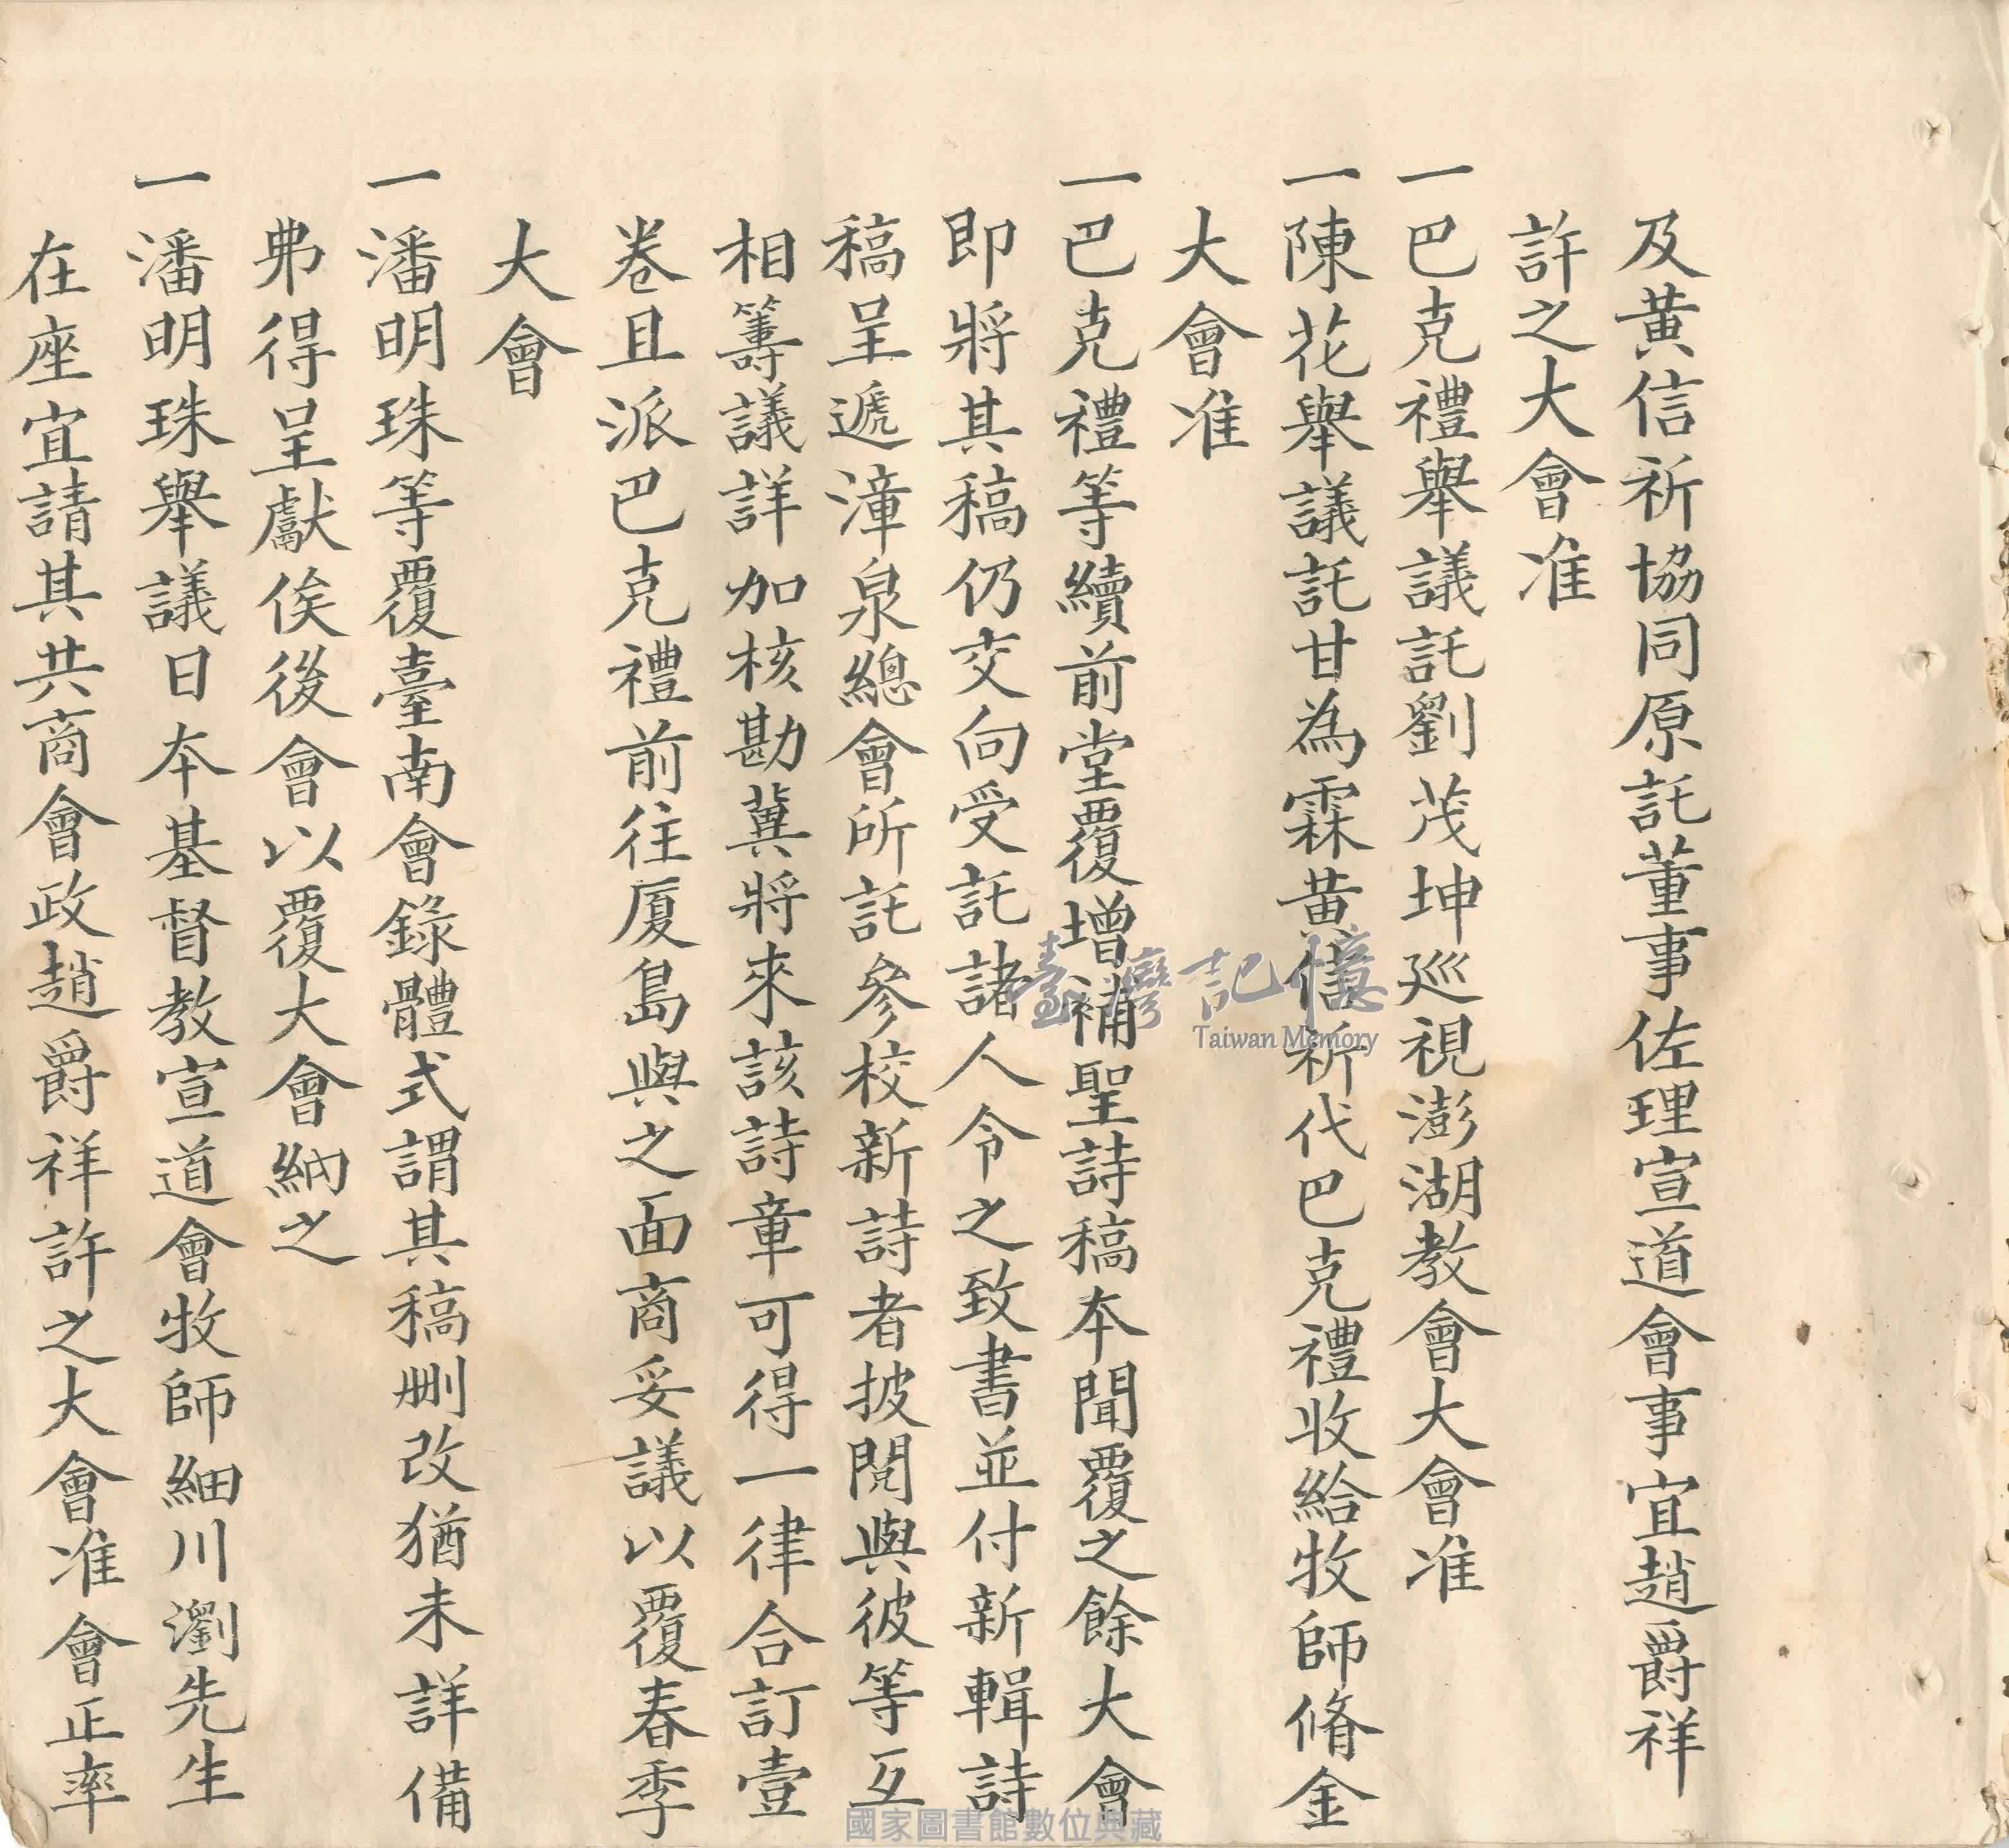 及黃信祈協同原託董事佐理宣道會事宜趙爵祥
許之大會准
一巴克禮舉議託劉茂坤巡視澎湖教會大會准
一陳花舉議託甘為霖黃信祈代巴克禮收給牧師脩金
大會准
一巴克禮等續前堂覆增補聖詩稿本聞覆之餘大會
即將其稿仍交向受託諸人令之致書並付新輯詩
稿呈遞漳泉總會所託參校新詩者披閱與彼等互
相籌議詳加核勘冀將來該詩章可得一律合訂壹
卷且派巴克禮前往厦島與之面商妥議以覆春季
大會
一潘明珠等覆臺南會錄體式謂其稿刪改猶未詳備
弗得呈獻俟後會以覆大會納之
一潘明珠舉議日本基督教宣道會牧師細川瀏先生
在座宜請其共商會政趙爵祥許之大會准會正率
臺灣記憶
Taiwan Memory
國家圖書館數位典藏